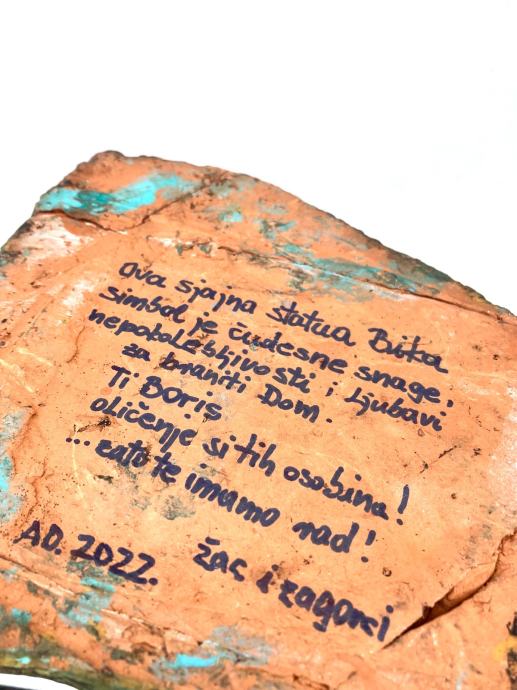 Ova sjajna statua Bika
simbol je čudesne snage,
nepokolebljivosti i Ljubavi
za braniti Dom.
Ti Boris
oličenje si tih osobina!
...zato te imamo rad!
Žac i zagorci
A.D. 2022.